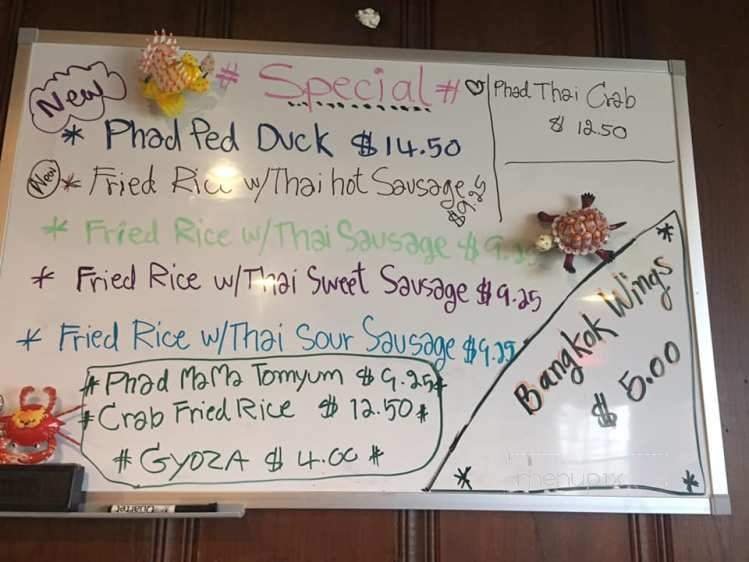 New
# Special #
* Phad Ped Duck $14.50
New * Fried Rice w/Thai hot Sausage $9.25
* Fried Rice w/Thai Sausage $9.25
* Fried Rice w/Thai Sweet Sausage $9.25
* Fried Rice w/Thai Sour Sausage $9.25
# Phad MaMa Tomyum $9.25 #
# Crab Fried Rice $12.50 #
# GYOZA $4.00 #
Phad Thai Crab
$12.50
* Bangkok Wings
$5.00
* *
menupix